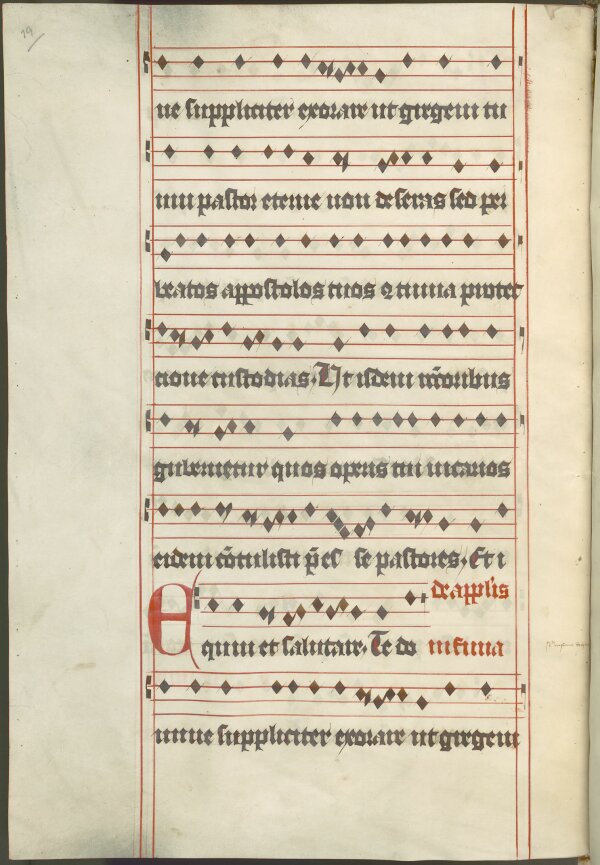 19
ne suppliciter exorare ut gregem tu
um pastor eterne non deseras sed per
beatos appostolos tuos ꝯtinua protec
tione custodias. Ut iisdem rectoribus
gubernetur quos operis tui uicarios
eidem cōtulisti p̄ees se pastores. Et i
de applis
Equum et salutare. Te do infima
mine suppliciter exorare ut gregem